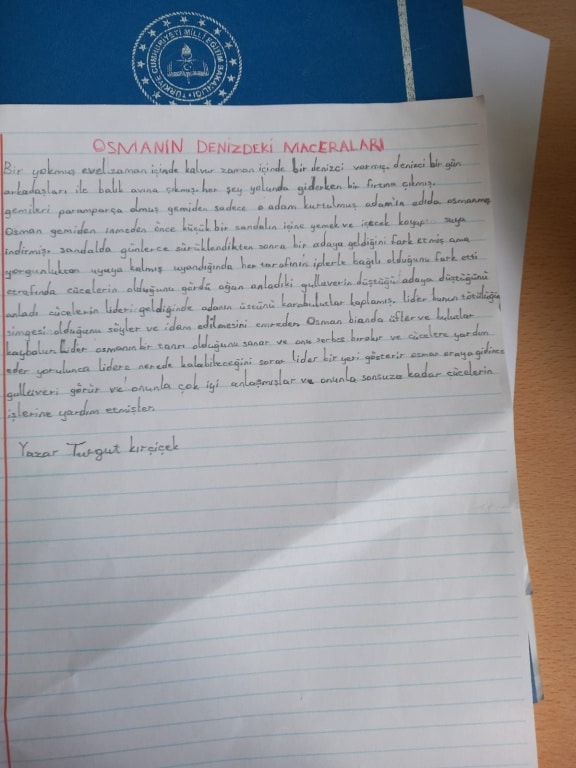 TÜRKİYE CUMHURİYETİ MİLLÎ EĞİTİM BAKANLIĞI
OSMANIN DENİZDEKİ MACERALARI
Bir yokmış evelizaman içinde kalvur zaman içinde bir denizci varmış. denizci bir gün
arkadaşları ile balık avına çıkmış. her şey yolunda giderken bir fırtına çıkmış.
gemileri paramparça olmuş gemiden sadece o adam kurtulmuş adamın adıda osmanmış
Osman gemiden inmeden önce küçük bir sandalın içine yemek ve içecek koyup suya
indirmiş. sandalda günlerce sürüklendikten sonra bir adaya geldiğini fark etmiş ama
yorgunluktan uykuya kalmış uyandığında her tarafının iplerle bağılı olduğunu fark etti
etrafında cücelerin olduğunu gördü oğan anladıki gulliverin düştüğü adaya düştüğünü
anladı cücelerin lideri geldiğinde adanın üsçünü karabulutlar kaplamış. lider bunun kötülüğün
simgesi olduğunu söyler ve idam edilmesini emreder. Osman bianda üfler ve bulutlar
kaybolur. Lider osmanın bir tanrı olduğunu sanar ve onu serbes bırakır ve cücelere yardım
eder yorulunca lidere nerede kalabileceğini sorar lider bir yeri gösterir osman oraya gidince
gulliveri görür ve onunla çok iyi anlaşmışlar ve onunla sonsuza kadar cücelerin
işlerine yardım etmişler.
Yazar Turgut kırçiçek